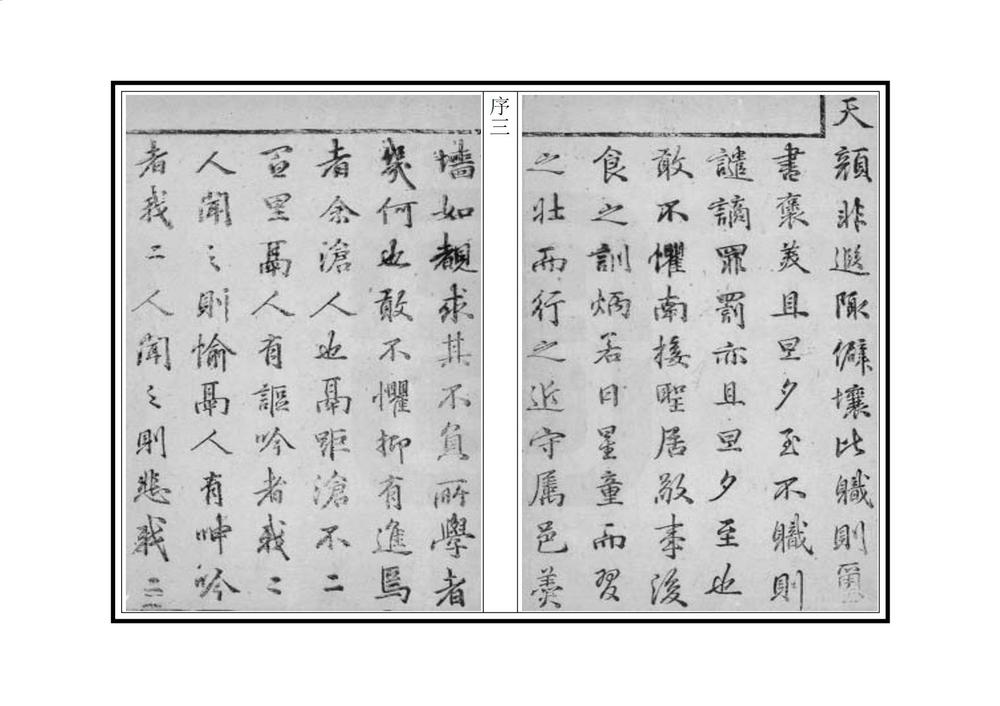 天顏非遐陬僻壤比職則璽
書褒美且旦夕至不職則
譴謫罪罰亦且旦夕至也
敢不懼南接聖居敬事後
食之訓炳若日星童而習
之壯而行之近守属邑羮
序三
墻如覩求其不負所學者
幾何也敢不懼抑有進焉
者余滄人也鬲距滄不二
百里鬲人有謳吟者我二
人聞之則愉鬲人有呻吟
者我二人聞之則悲我二